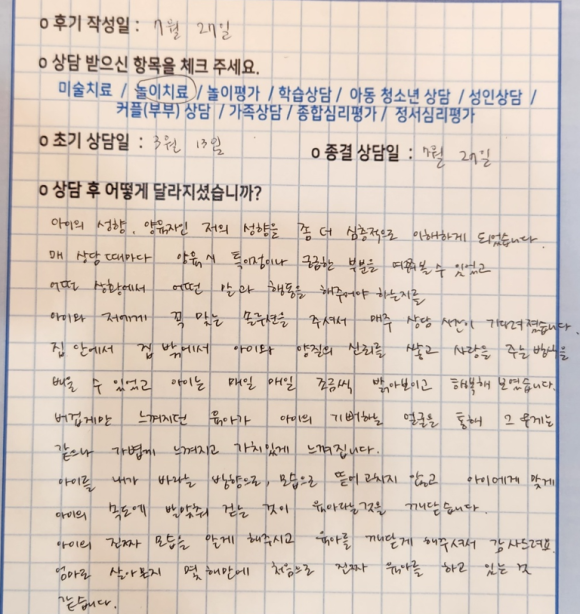 o 후기 작성일 : 7월 27일
o 상담 받으신 항목을 체크 주세요.
미술치료 / 놀이치료 / 놀이평가 / 학습상담 / 아동 청소년 상담 / 성인상담 /
커플(부부) 상담 / 가족상담 / 종합심리평가 / 정서심리평가
o 초기 상담일 : 3월 13일
o 종결 상담일 : 7월 27일
o 상담 후 어떻게 달라지셨습니까?
아이의 성향, 양육자인 저의 성향을 좀 더 심층적으로 이해하게 되었습니다.
매 상담때마다 양육시 특이점이나 궁금한 부분을 여쭤볼 수 있었고
어떤 상황에서 어떤 말과 행동을 해주어야 하는지를
아이와 저에게 꼭 맞는 솔루션을 주셔서 매주 상담 시간이 기다려졌습니다.
집 안에서 집 밖에서 아이와 양질의 신뢰를 쌓고 사랑을 주는 방법을
배울 수 있었고 아이는 매일 매일 조금씩 밝아보이고 행복해 보였습니다.
버겁게만 느껴지던 육아가 아이의 기뻐하는 얼굴을 통해 그 무게는
같으나 가볍게 느껴지고 가치있게 느껴집니다.
아이를 내가 바라는 방향으로, 모습으로 뜯어고치지 않고 아이에게 맞게
아이의 속도에 발맞춰 걷는 것이 육아라는것을 깨닫습니다.
아이의 진짜 모습을 알게 해주시고 육아를 깨닫게 해주셔서 감사드려요.
엄마로 살아온지 몇 해만에 처음으로 진짜 육아를 하고 있는 것
같습니다.